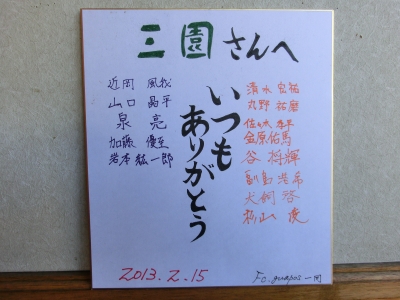 三園さんへ
いつも
ありがとう
近岡 風我
山口 晶平
泉 亮
加藤 優至
岩本 紘一郎
清水 宏祐
丸野 祐磨
金原佑馬
谷 将輝
副島 浩希
犬飼 啓
杉山 俊
2013.2.15
Fc. guapos 一同